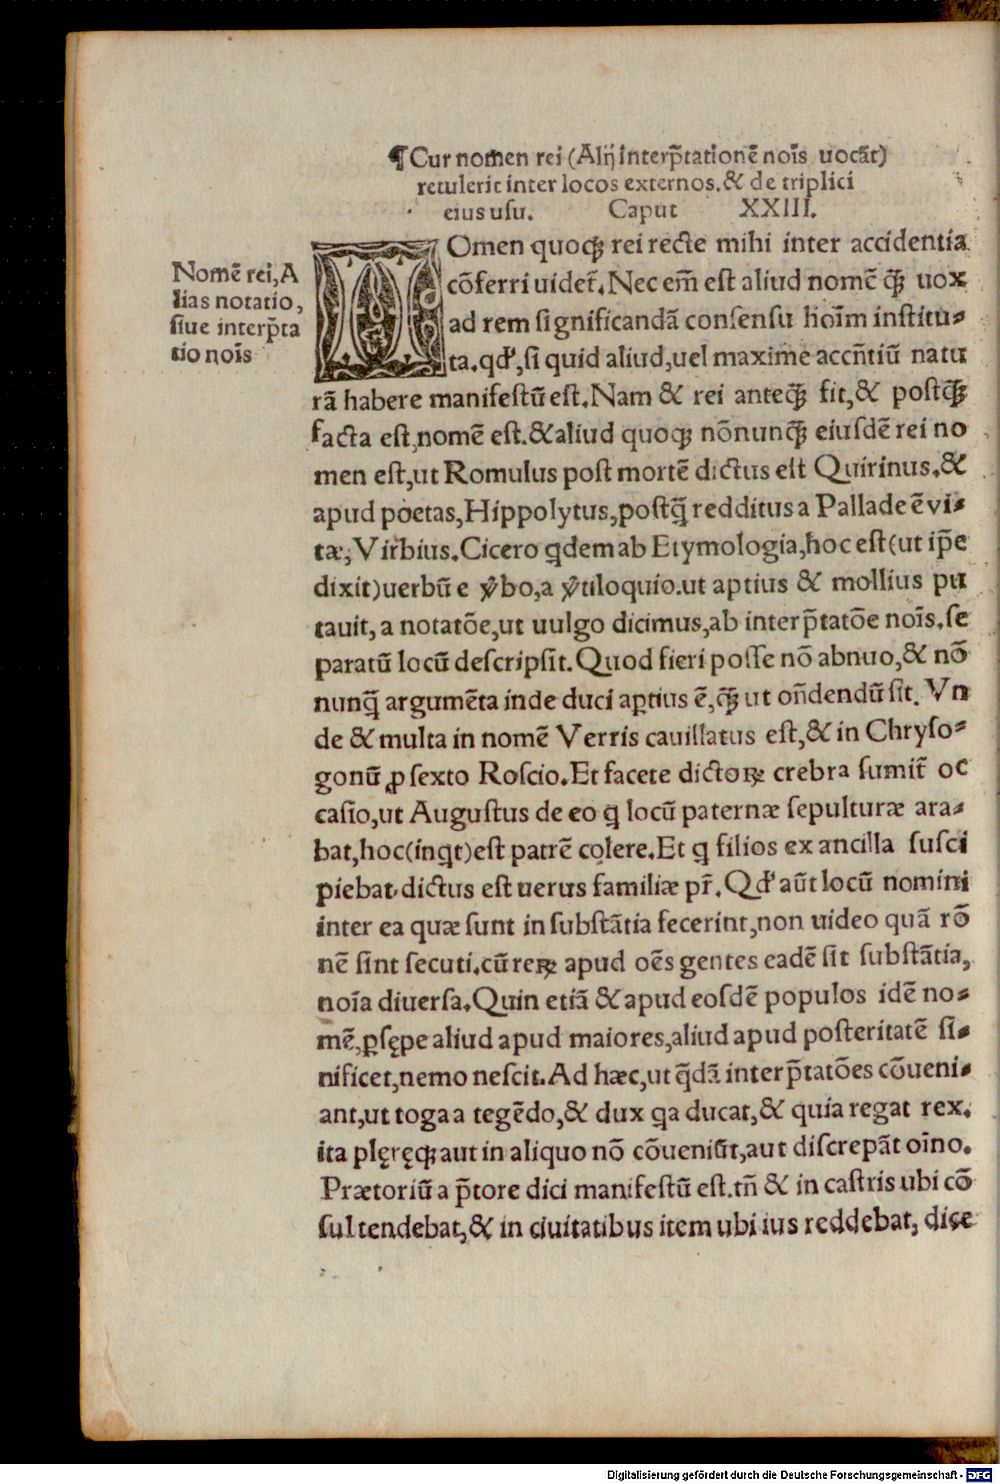 ¶Cur nomen rei (Alij interp̃tationẽ noĩs uocãt)
retulerit inter locos externos.& de triplici
eius usu. Caput XXIII.
Nomẽ rei, A
lias notatio,
siue interp̃ta
tio noĩs
NOmen quoqꝫ rei recte mihi inter accidentia
cõferri uidet̃. Nec em̃ est aliud nomẽ q̃ꝫ uox
ad rem significandã consensu hoĩm institu⸗
ta. qđ, si quid aliud, uel maxime accñtiũ natu
rã habere manifestũ est. Nam & rei anteq̃ꝫ fit, & postq̃ꝫ
facta est, nomẽ est. & aliud quoqꝫ nõnunq̃ꝫ eiusdẽ rei no
men est, ut Romulus post mortẽ dictus est Quirinus. &
apud poetas, Hippolytus, postq̃ redditus a Pallade ẽ vi⸗
tæ, Virbius. Cicero qdem ab Etymologia, hoc est (ut ip̃e
dixit) uerbũ e v̾bo, a v̾tiloquio. ut aptius & mollius pu
tauit, a notatõe, ut uulgo dicimus, ab interp̃tatõe noĩs. se
paratũ locũ descripsit. Quod fieri posse nõ abnuo, & nõ
nunq̃ argumẽta inde duci aptius ẽ, q̃ꝫ ut oñdendũ sit. Vn
de & multa in nomẽ Verris cauillatus est, & in Chryso⸗
gonũ ꝓ sexto Roscio. Et facete dictoꝝ crebra sumit̃ oc
casio, ut Augustus de eo q locũ paternæ sepulturæ ara⸗
bat, hoc (inqt) est patrẽ colere. Et q filios ex ancilla susci
piebat, dictus est uerus familiæ pr̃. Qđ aũt locũ nomini
inter ea quæ sunt in substãtia fecerint, non uideo quã rõ
nẽ sint secuti. cũ reꝝ apud oẽs gentes eadẽ sit substãtia,
noĩa diuersa. Quin etiã & apud eosdẽ populos idẽ no⸗
mẽ, ꝑsępe aliud apud maiores, aliud apud posteritatẽ si⸗
nificet, nemo nescit. Ad hæc, ut q̃dã interp̃tatões cõueni⸗
ant, ut toga a tegẽdo, & dux qa ducat, & quia regat rex.
ita plęręqꝫ aut in aliquo nõ cõueniũt, aut discrepãt oĩno.
Prætoriũ a p̃tore dici manifestũ est. tñ & in castris ubi cõ
sul tendebat, & in ciuitatibus item ubi ius reddebat, dice
Digitalisierung gefördert durch die Deutsche Forschungsgemeinschaft - DFG